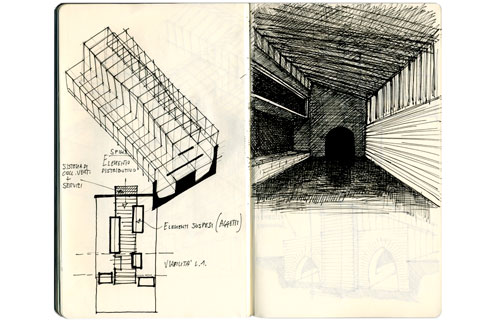 SPINA
E
ELEMENTO
DISTRIBUTIVO
SISTEMA DI
COLL. VERT.
+
SERVIZI
ELEMENTI SOSPESI (AGGETTI)
VIABILITA' L.1.